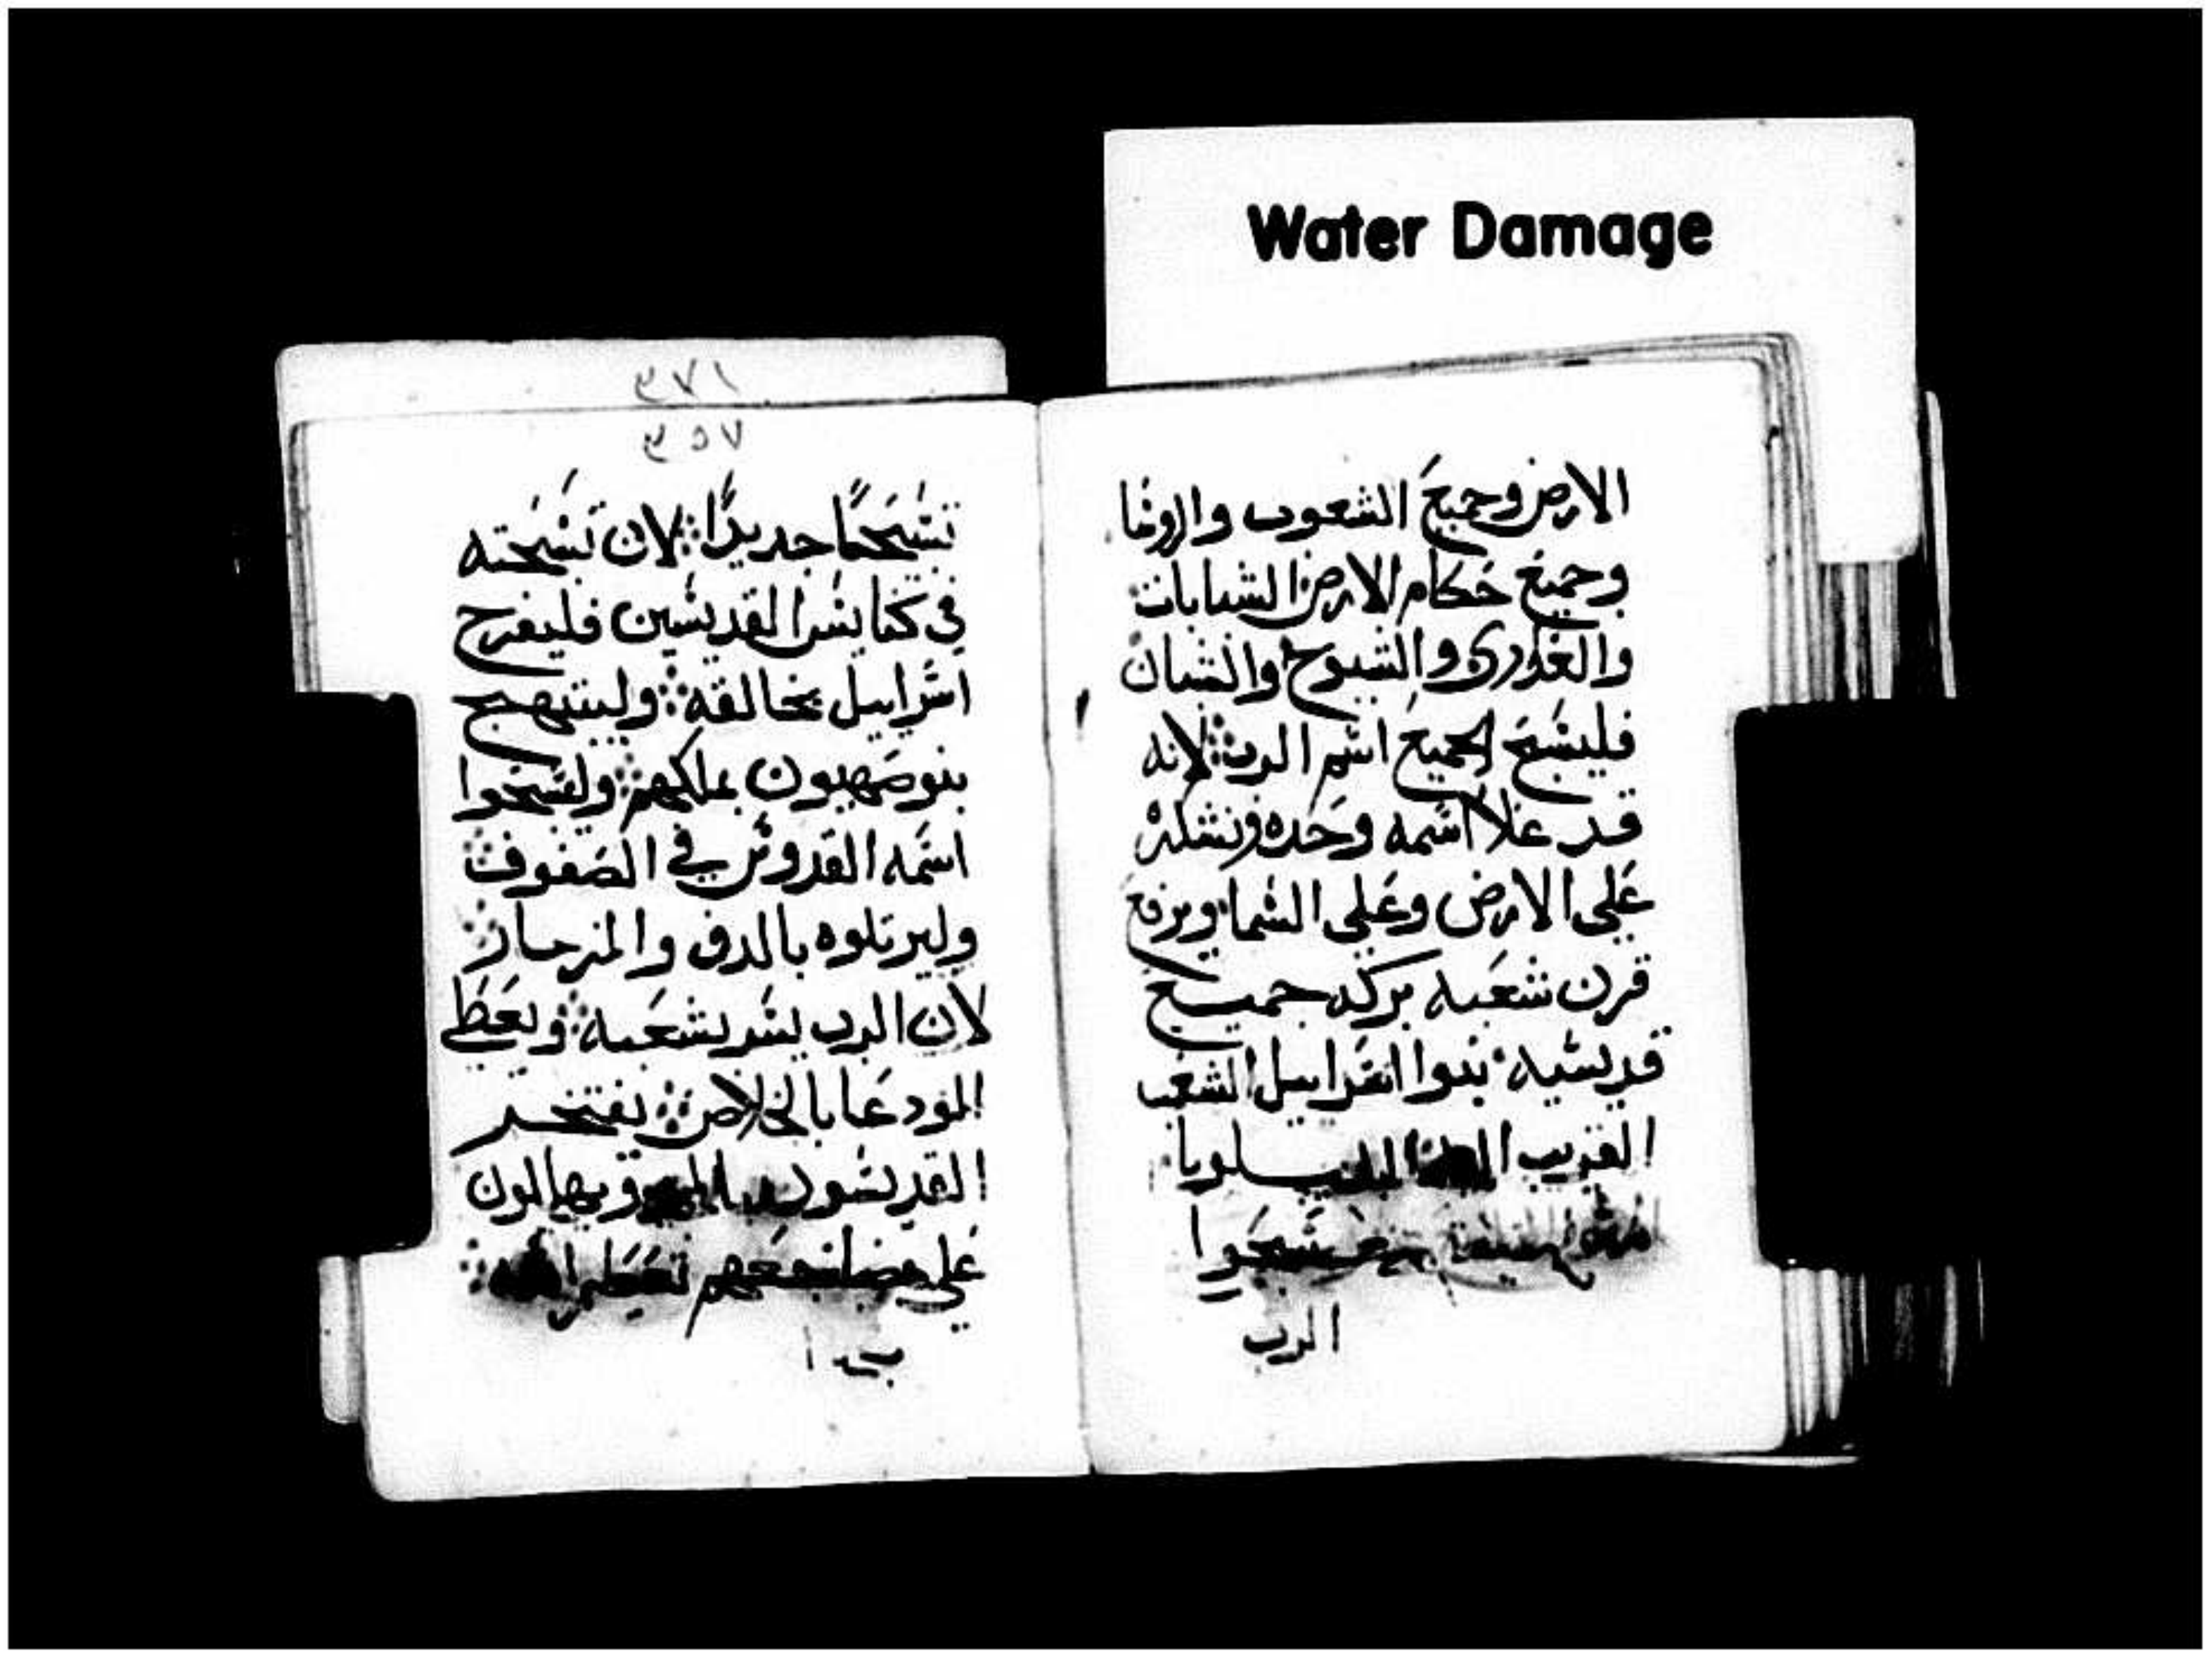 Water Damage
الارض وجميع الشعوب والاروسا
وجميع حكام الارض الشابات
والعدارى والشيوخ والشبان
فليسبح الجميع اسم الرب لانه
قد علا اسمه وحده ونشكره
على الارض وعلى السما ويرفع
قرن شعبه بركه جميع
قديسيه بنوا اسراييل الشعب
القريب الليلويا
سبحوا
الرب
٣٧١
٣٥٧
تسبحا جديدا لان تسبحته
في كنايس القديسين فليفرح
اسراييل بخالقه وليبتهج
بنو صهيون بملكهم وليسبحوا
اسمه القدوس في الصفوف
وليرتلوه بالدف والمزمار
لان الرب يسر بشعبه ويعطي
المودعا بالخلاص يفتخر
القديسون ويهللون
على مضاجعهم تعظيم الله